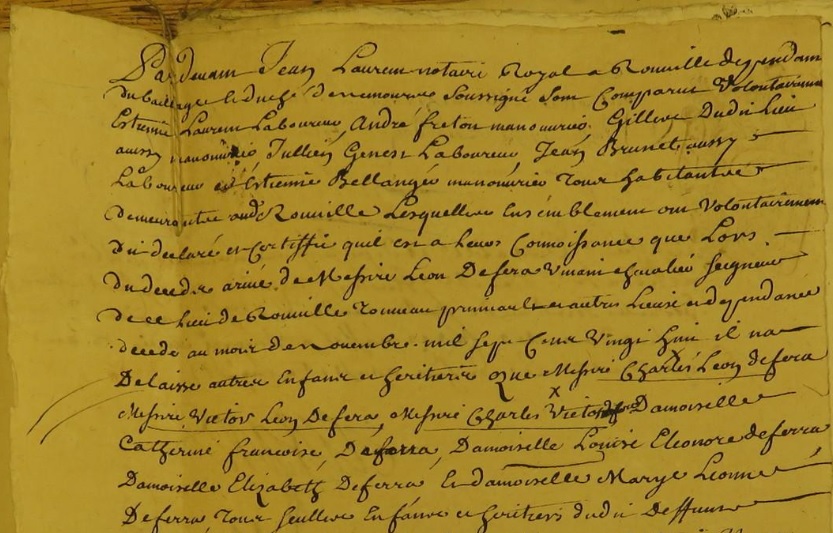 Pardevant Jean Laurent notaire Royal a Rouville dependant
du bailliage & duché de nemours soussigné sont comparus Volontairement
Estienne Laurent Laboureur, André freton manouvrier, Gillers dudit Lieu
aussy manouvrier Jullien Genest Laboureur, Jean Brunet aussy
Laboureur et Estienne Bellanger manouvrier tous habitants
demeurants aud Rouville Lesquelles Ensemblement ont Volontairement
dit declaré et Certiffié quil est a leurs Connoissance que Lors
du deceds arivé de Messire Leon Defera Vivant chevalier seigneur
de ce lieu de Rouville et autres Lieux et dependances
decedé au mois de novembre mil sept Cent Vingt huit il na
Delaissé autres Enfants et heritiers Que Messire Charles Leon defera
Messire Victor Leon Defera, Messire Charles Victor Damoiselle
Catherine francoise, Deferra, Damoiselle Louise Eleonore deferra
Damoiselle Elizabeth Deferra Et damoiselle Marye Leonne
Deferra, tous seulles Enfants et heritiers dudit Deffunt